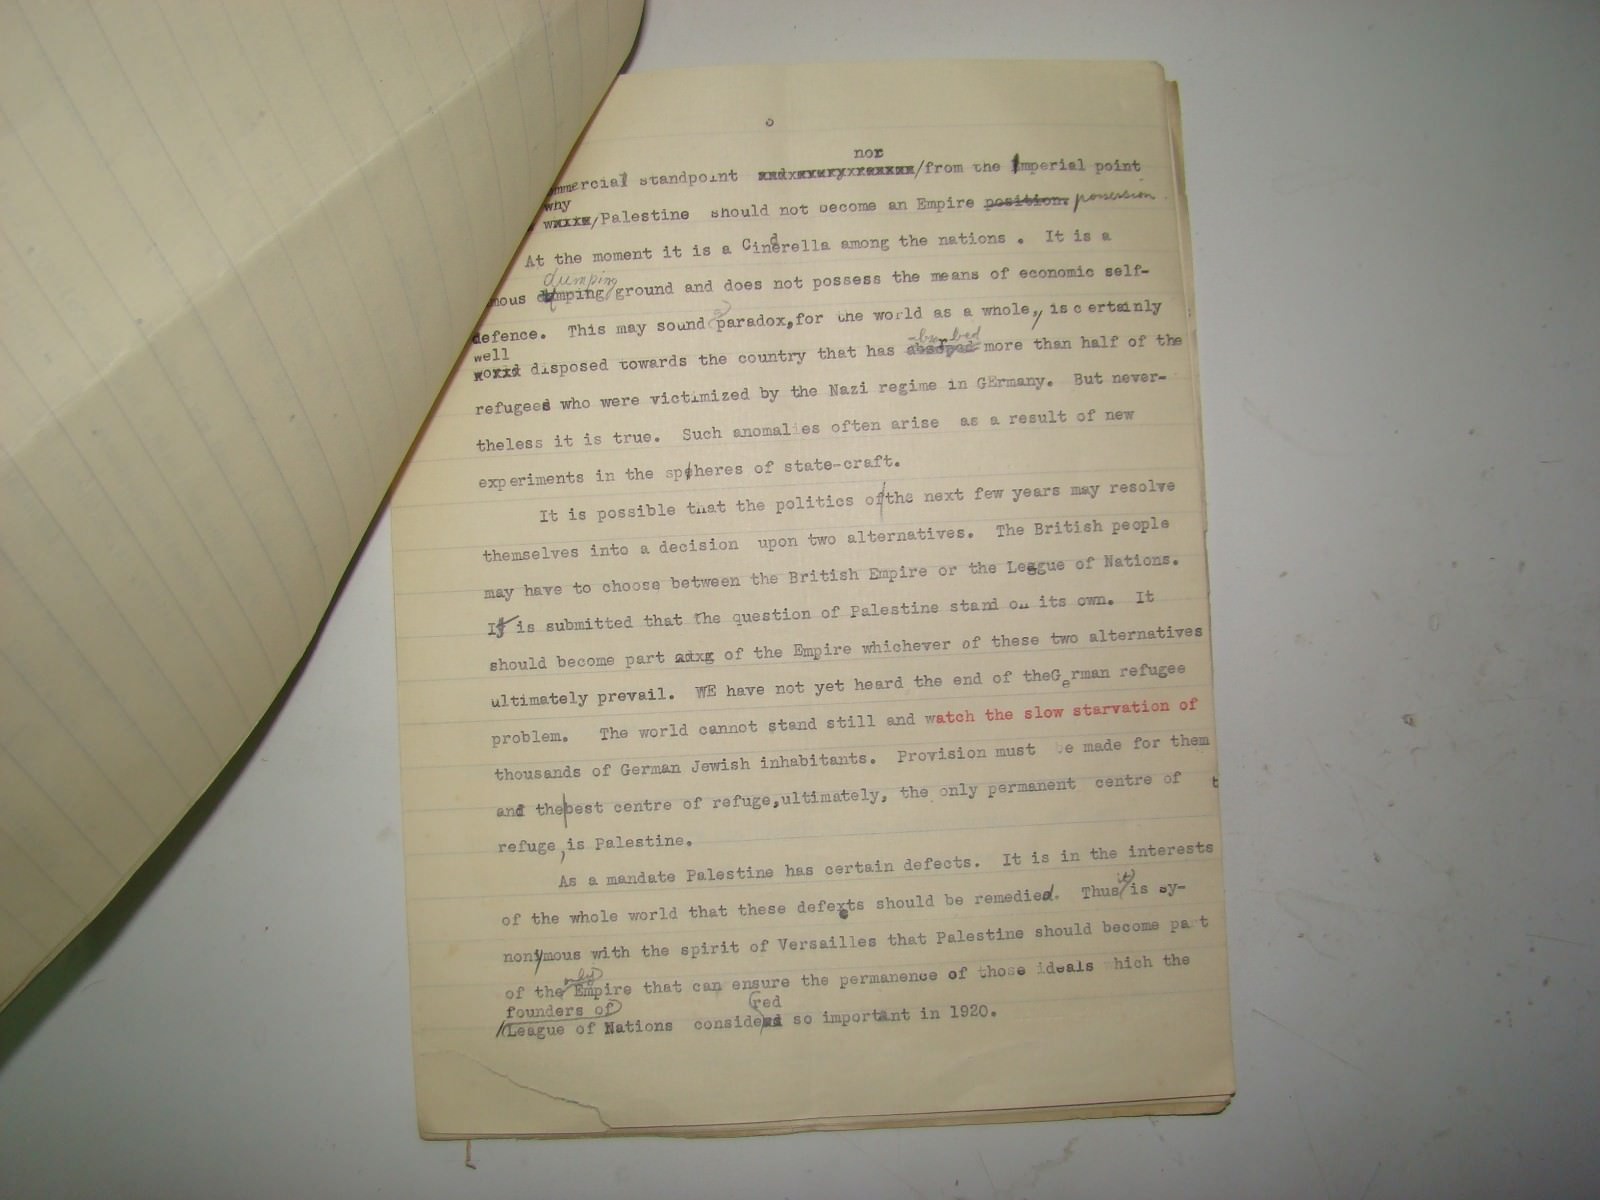 nor
ommercial standpoint /from the Imperial point
why
/Palestine should not become an Empire position. possession.
At the moment it is a Cinderella among the nations. It is a
dumping
mous dumping ground and does not possess the means of economic self-
defence. This may sound paradox,for the world as a whole, is certainly
well
world disposed towards the country that has absorbed more than half of the
refugees who were victimized by the Nazi regime in GErmany. But never-
theless it is true. Such anomalies often arise as a result of new
experiments in the spheres of state-craft.
It is possible that the politics of the next few years may resolve
themselves into a decision upon two alternatives. The British people
may have to choose between the British Empire or the League of Nations.
It is submitted that the question of Palestine stand on its own. It
should become part of the Empire whichever of these two alternatives
ultimately prevail. WE have not yet heard the end of theGerman refugee
problem. The world cannot stand still and watch the slow starvation of
thousands of German Jewish inhabitants. Provision must be made for them
and the best centre of refuge,ultimately, the only permanent centre of t
refuge,is Palestine.
As a mandate Palestine has certain defects. It is in the interests
of the whole world that these defects should be remedied. Thus it is sy-
nonymous with the spirit of Versailles that Palestine should become part
only
of the Empire that can ensure the permanence of those ideals which the
founders of red
League of Nations consid so important in 1920.